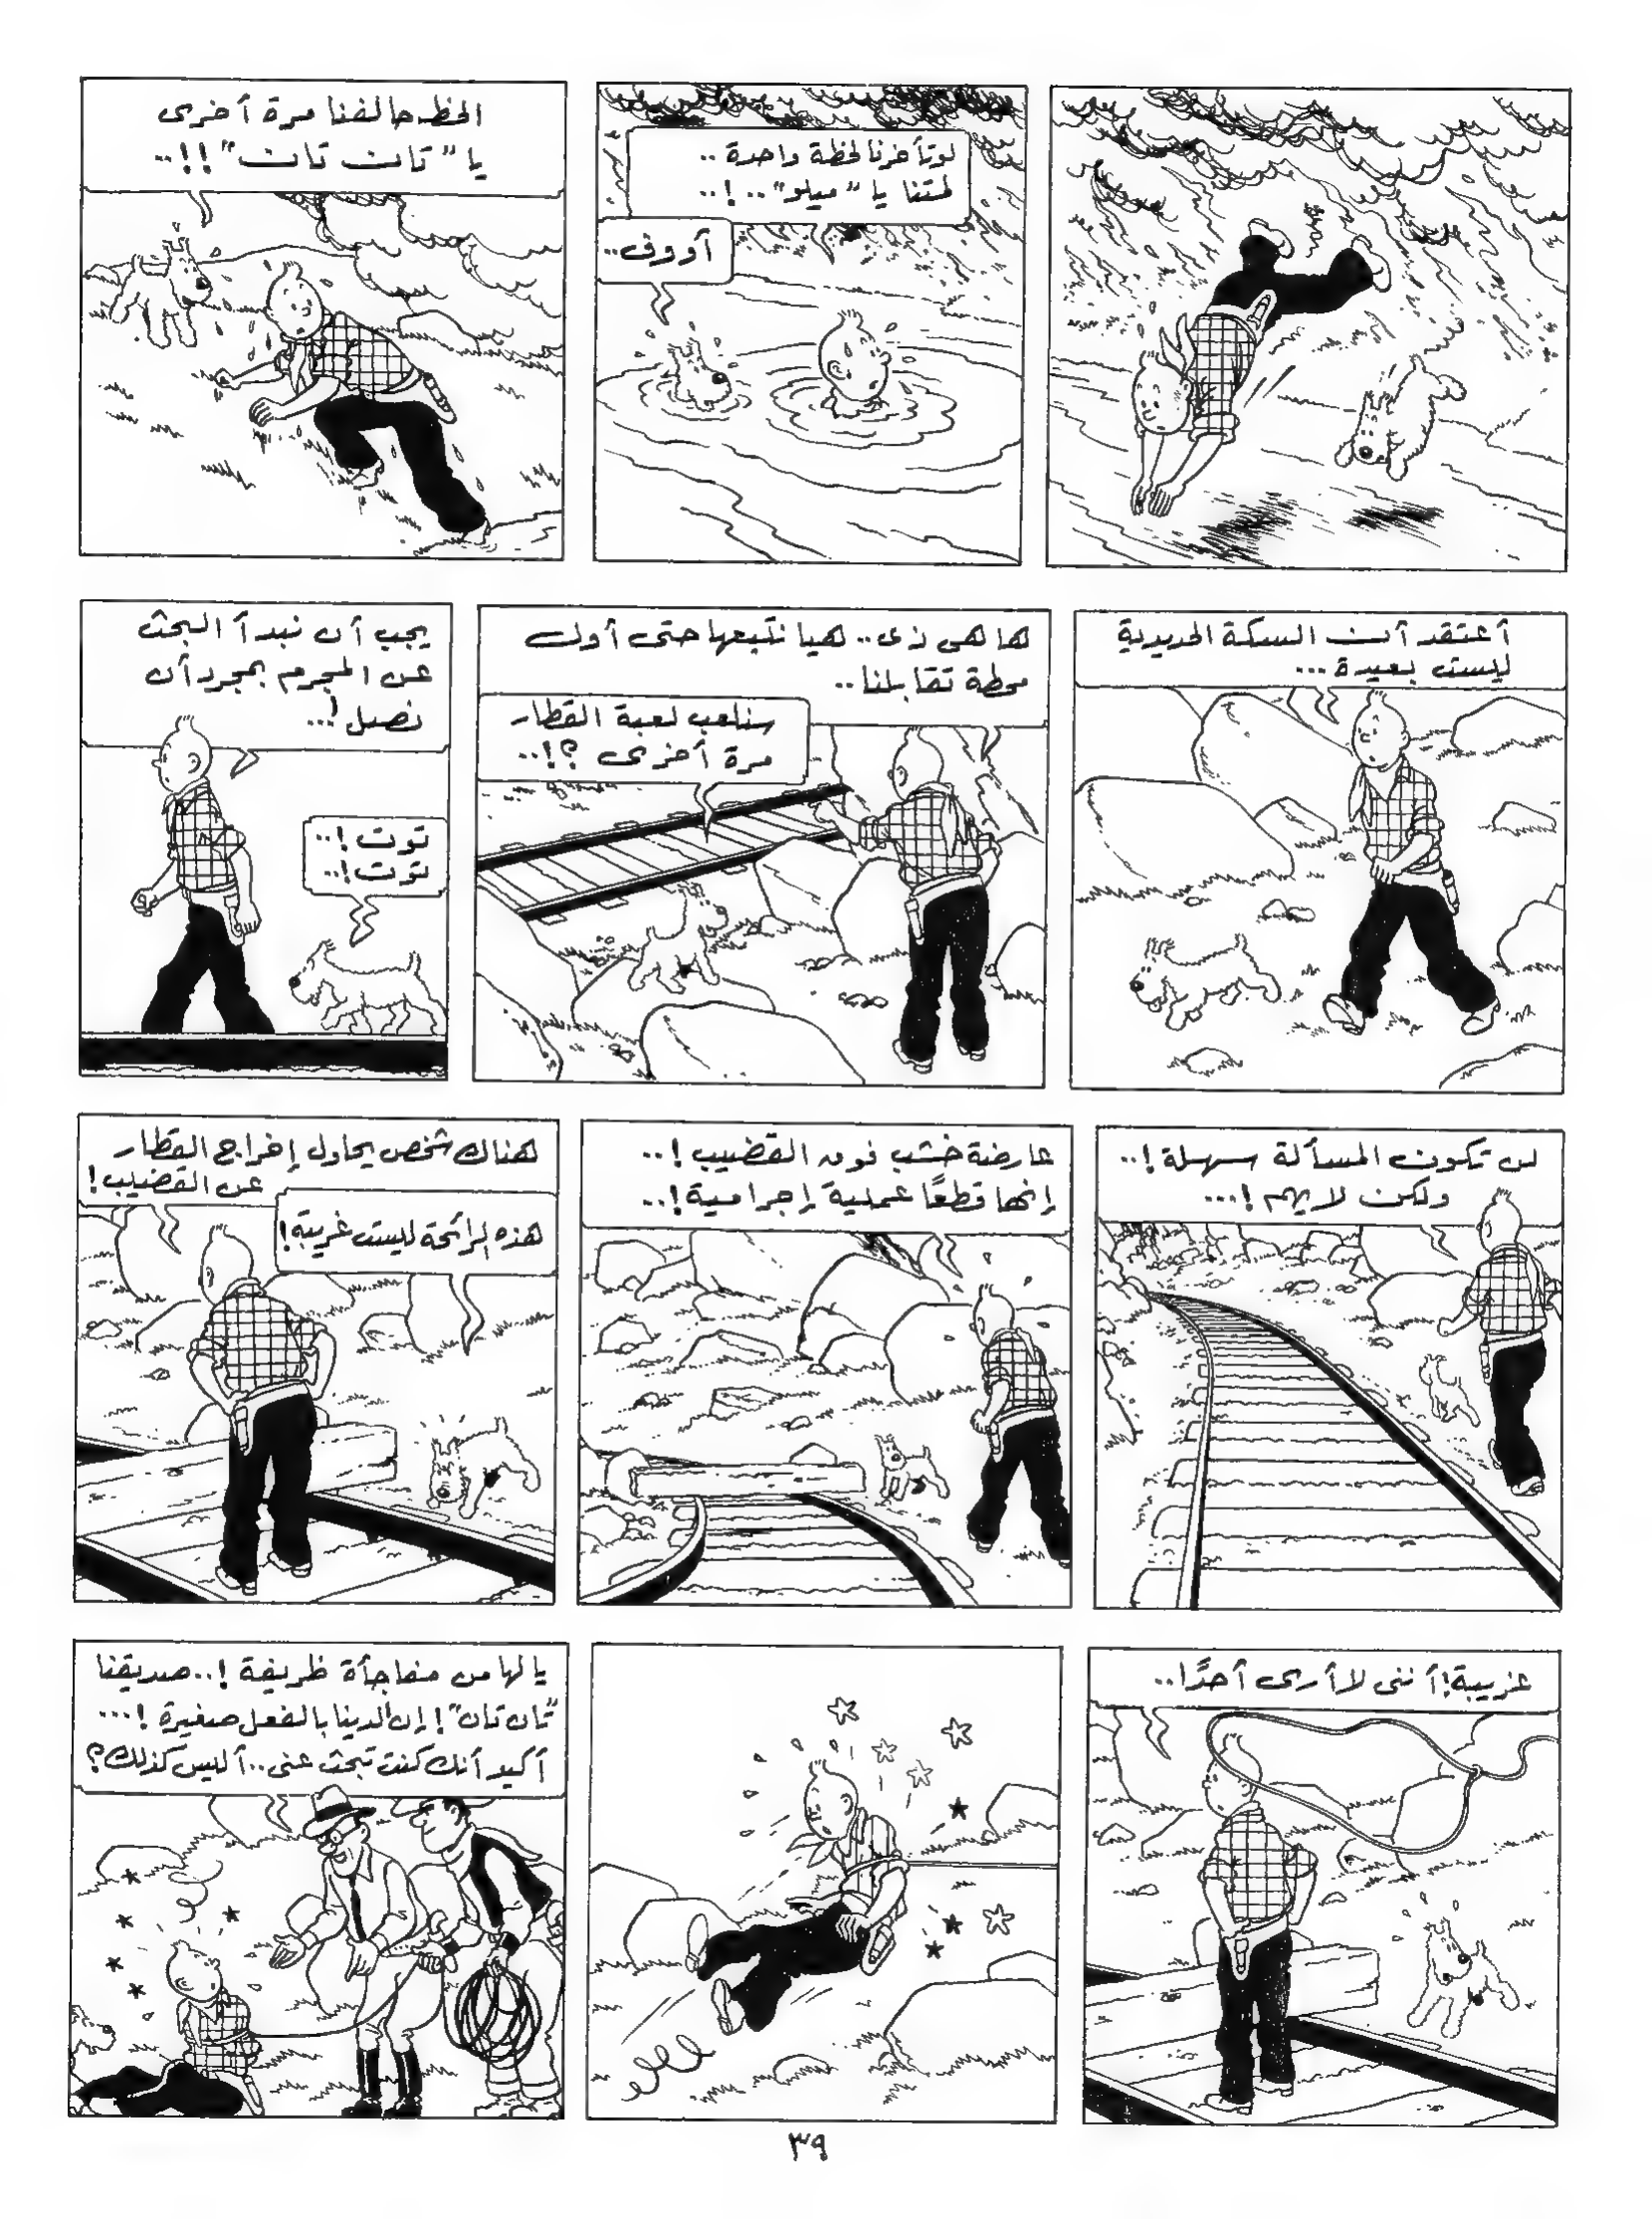 لوتأخرنا لحظة واحدة ..
لمتنا يا "ميلو" .. !..
أووف..
الحظ حالفنا مرة أخرى
يا "تان تان" !!..
أعتقد أن السكة الحديدية
ليست بعيدة ...
ها هى ذى.. هيا نتبعها حتى أول
محطة تقابلنا..
سنلعب لعبة القطار
مرة أخرى ؟!..
يجب أن نبدأ البحث
عن المجرم بمجرد أن
نصل !...
توت !..
توت !..
لن تكون المسألة سهلة !..
ولكن لا يهم !...
عارضة خشب فوق القضيب !..
إنها قطعًا عملية إجرامية !..
هناك شخص يحاول إخراج القطار
عن القضيب !
هذه الرائحة ليست غريبة !
غريبة ! أننى لا أرى أحدًا..
يالها من مفاجأة ظريفة !.. صديقنا
"تان تان" ! إن الدينا بالفعل صغيرة !...
أكيد أنك كنت تبحث عنى.. أليس كذلك ؟
٣٩